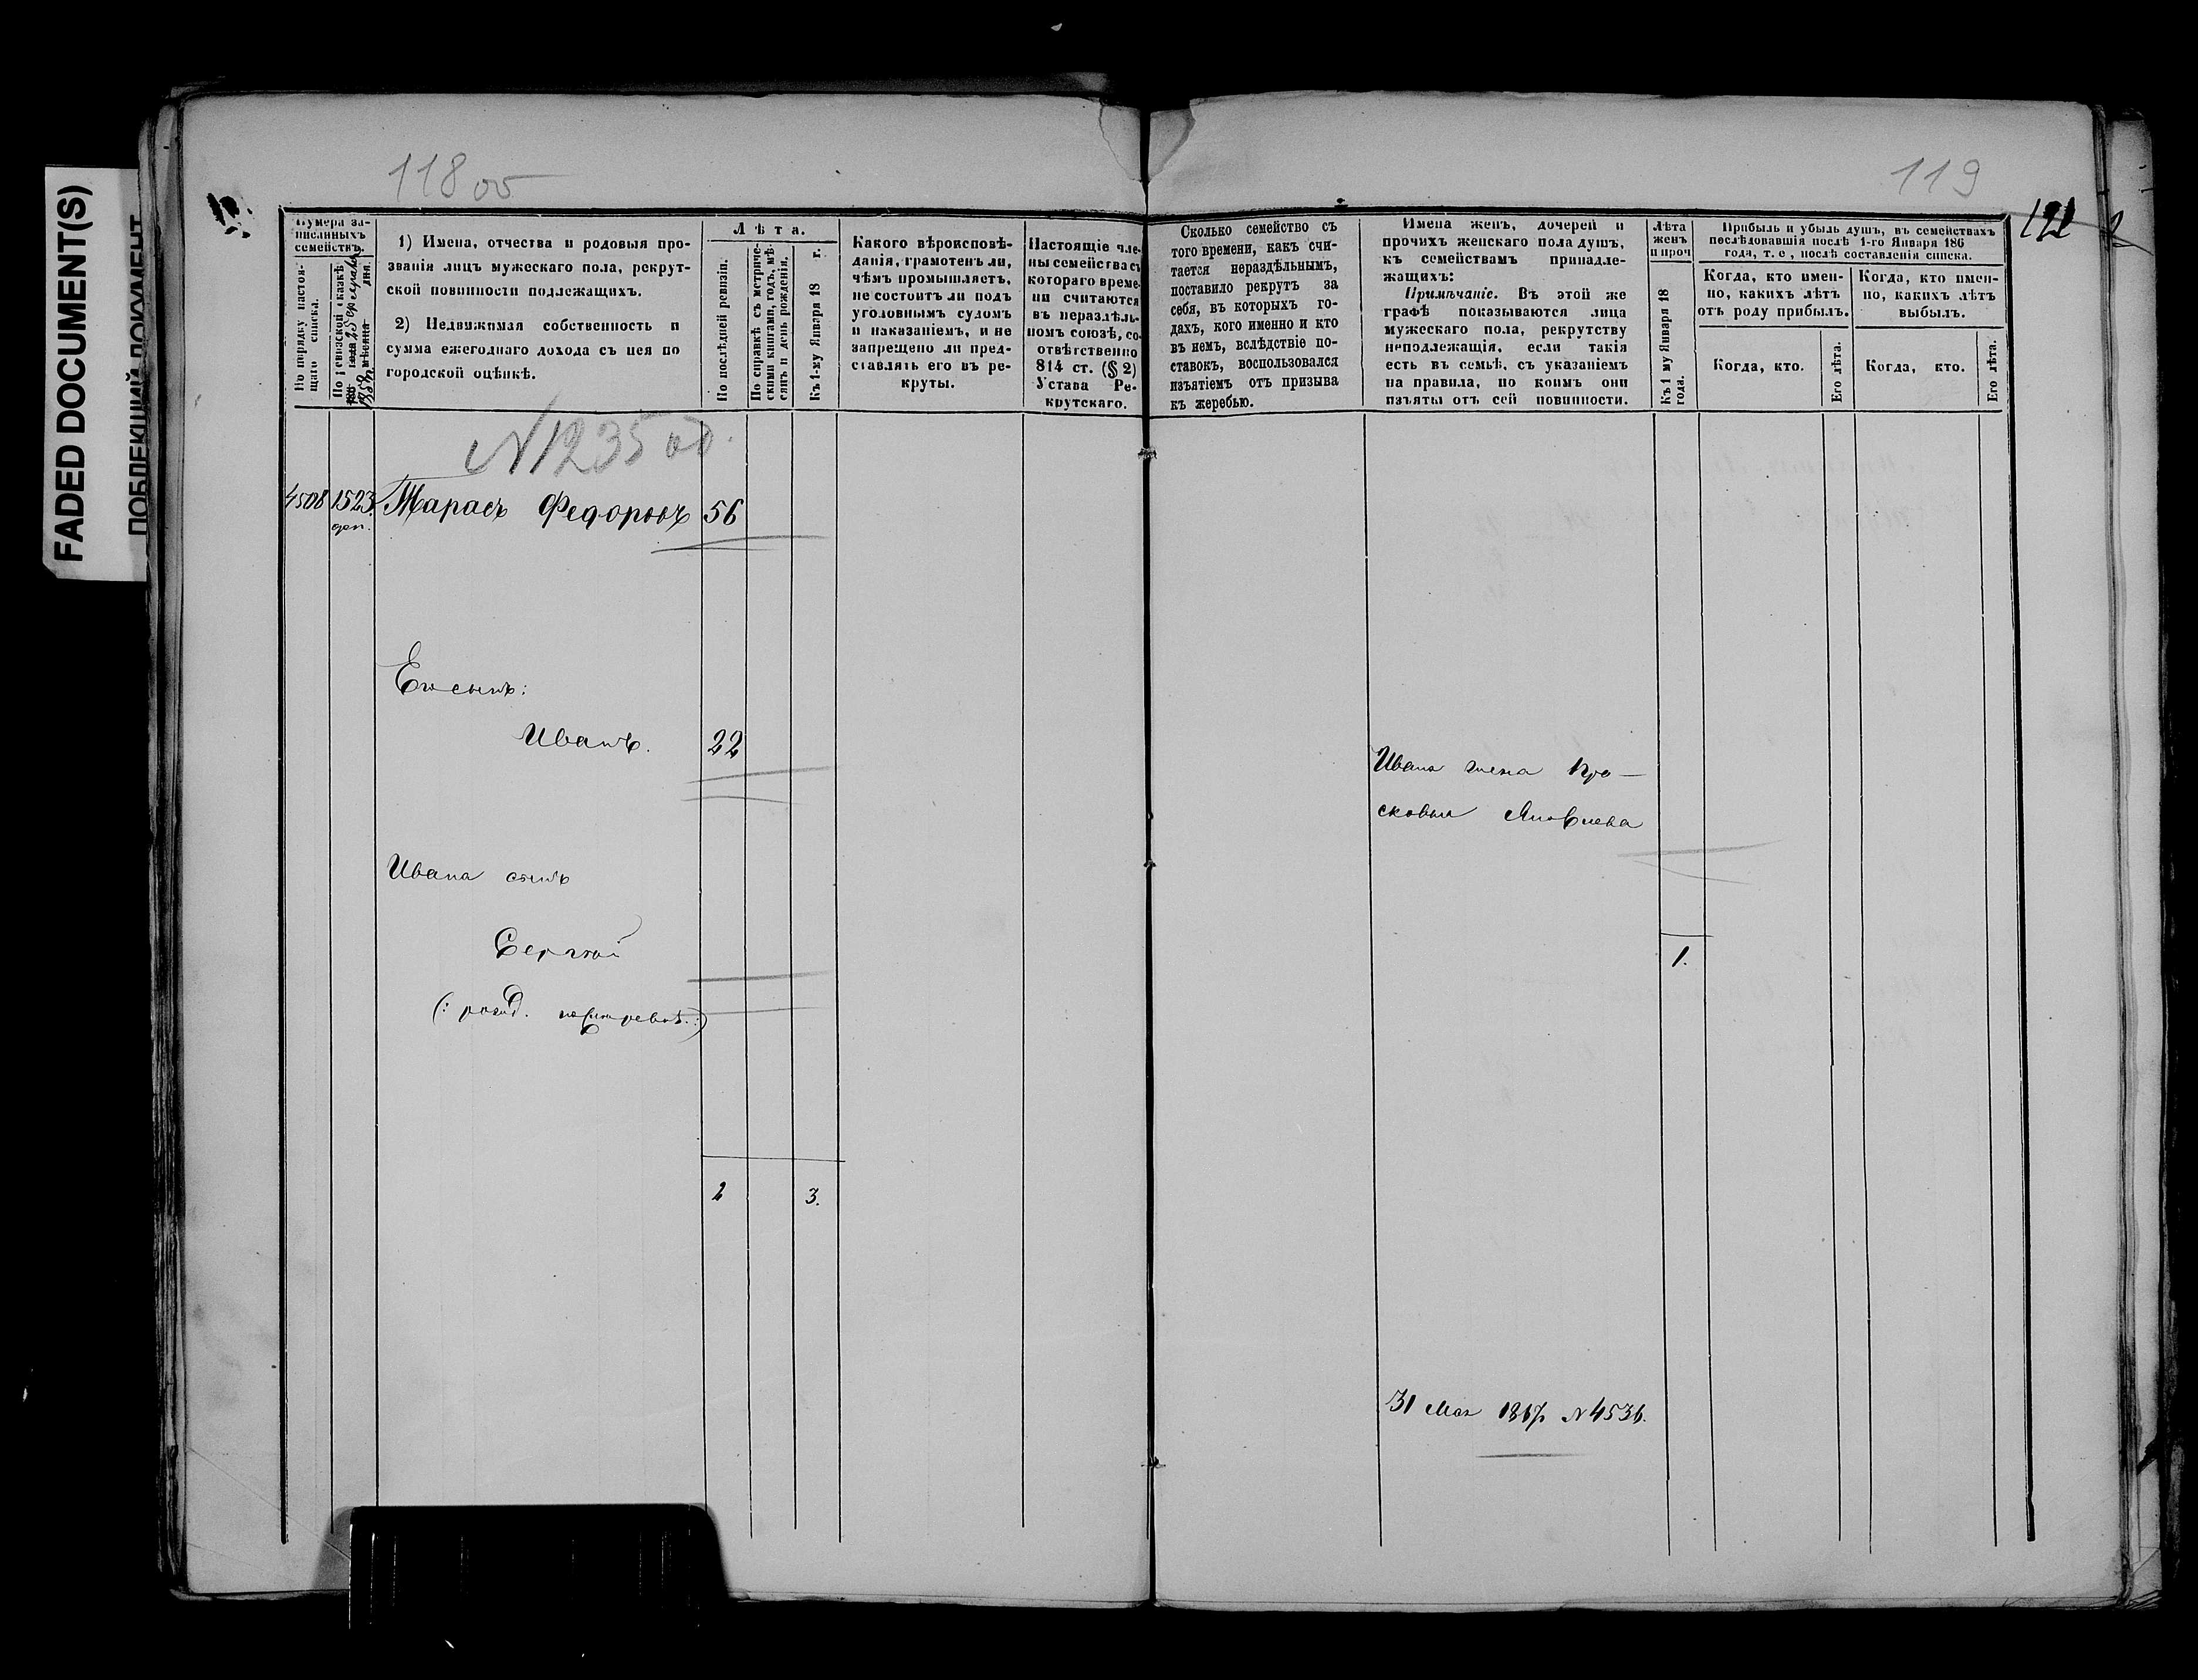 FADED DOCUMENT(S)
ПОБЛЕКШИЙ ДОКУМЕНТ
118 об
119
121
Нумера за-
писанныхъ
семействъ.
По порядку настоя-
щаго списка.
По ревизской сказкѣ
1858 года
мѣсяца дня.
1) Имена, отчества и родовыя про-
званія лицъ мужескаго пола, рекрут-
ской повинности подлежащихъ.
2) Недвижимая собственность и
сумма ежегоднаго дохода съ нея по
городской оцѣнкѣ.
Лѣта.
По послѣдней ревизіи.
По справкѣ съ метриче-
скими книгами, годъ, мѣ-
сяцъ и день рожденія.
Къ 1-му Января 18 г.
Какого вѣроисповѣ-
данія, грамотенъ ли,
чѣмъ промышляетъ,
не состоитъ ли подъ
уголовнымъ судомъ
и наказаніемъ, и не
запрещено ли пред-
ставлять его въ ре-
круты.
Настоящіе чле-
ны семейства съ
котораго време-
ни считаются
въ нераздѣль-
номъ союзѣ, со-
отвѣтственно
814 ст. (§ 2)
Устава Ре-
крутскаго.
Сколько семейство съ
того времени, какъ счи-
тается нераздѣльнымъ,
поставило рекрутъ за
себя, въ которыхъ го-
дахъ, кого именно и кто
въ немъ, вслѣдствіе по-
ставокъ, воспользовался
изъятіемъ отъ призыва
къ жеребью.
Имена женъ, дочерей и
прочихъ женскаго пола душъ,
къ семействамъ принадле-
жащихъ:
Примѣчаніе. Въ этой же
графѣ показываются лица
мужескаго пола, рекрутству
неподлежащія, если такія
есть въ семьѣ, съ указаніемъ
на правила, по коимъ они
изъяты отъ сей повинности.
Лѣта
женъ
и проч
Къ 1 му Января 18
года.
Прибыль и убыль душъ, въ семействахъ
послѣдовавшія послѣ 1-го Января 186
года, т. е., послѣ составленія списка.
Когда, кто имен-
но, какихъ лѣтъ
отъ роду прибылъ.
Когда, кто имен-
но, какихъ лѣтъ
выбылъ.
Когда, кто.
Его лѣта.
Когда, кто.
Его лѣта.
N 1235 об.
4508 1523 Тарасъ Федоровъ 56
доп.
Его сынъ:
Иванъ. 22
Ивана жена Про-
сковья Яковлева
Ивана сынъ
Сергѣй
1.
(: рожд. после ревиз. :)
2 3.
31 Мая 1867 N 4536.